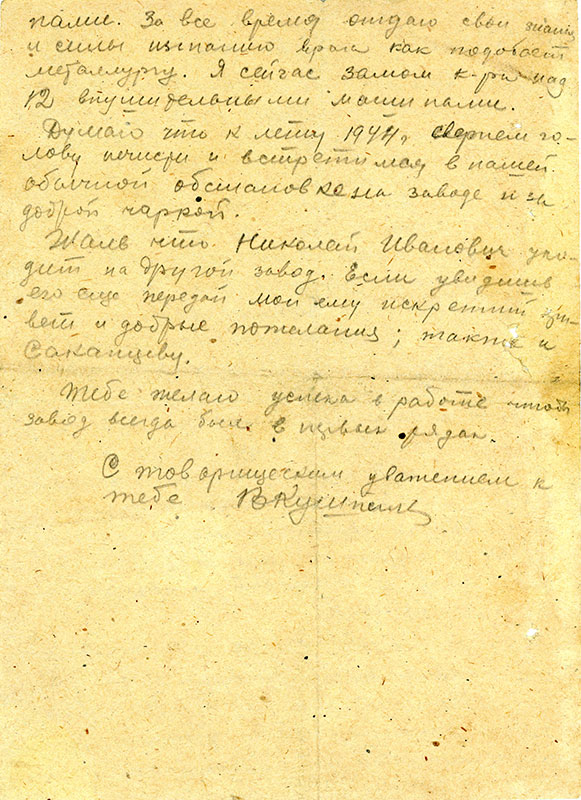 нами. За все время отдаю свои знания
и силы изгнанию врага как подобает
металлургу. Я сейчас замом к-ра над
12 внушительными машинами.
Думаю что к лету 1944г. свернем го-
лову нечисти и встретимся в нашей
обычной обстановке на заводе и за
доброй чаркой.
Жаль что Николай Иванович ухо-
дит на другой завод. Если увидишь
его еще передай мой ему искренний при-
вет и добрые пожелания; также и
Саканцеву.
Тебе желаю успеха в работе чтобы
завод всегда был в первых рядах.
С товарищеским уважением к
тебе